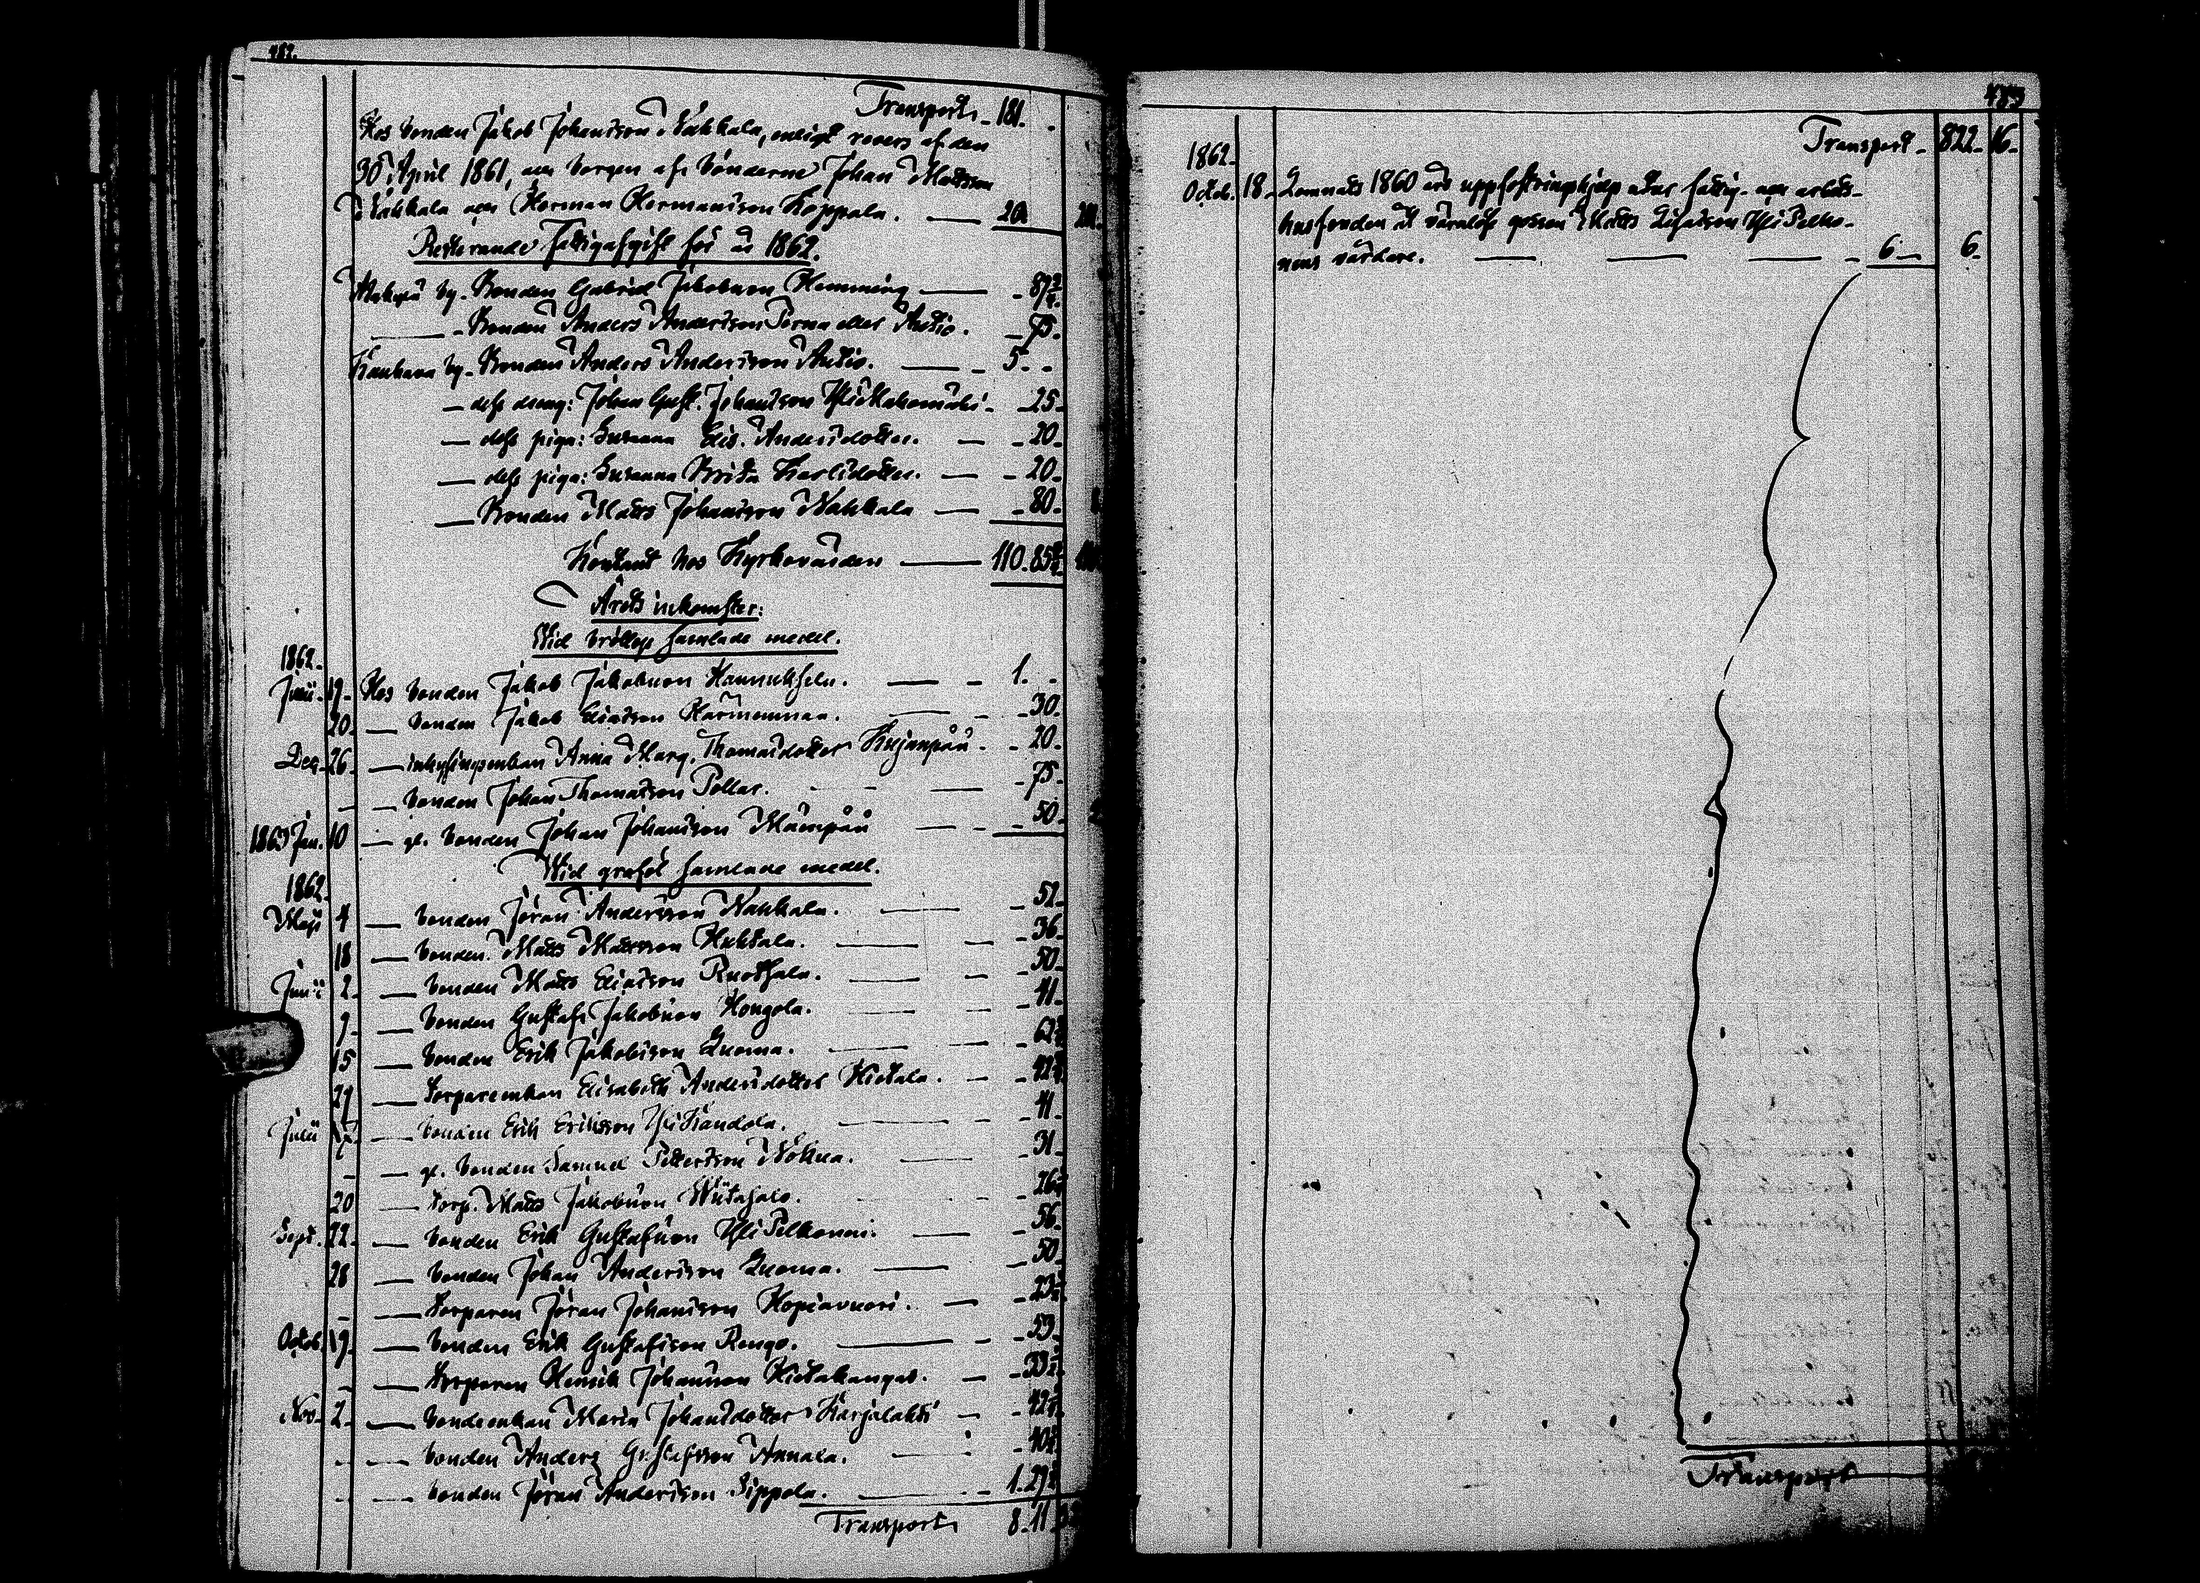 482.
Transport 181.
Hos bonden Jakob Johansson Nahkala, enligt revers af den
30 April 1861, och borgen af bönderne Johan Mattsson
Nahkala och Herman Hermansson Koppala. 20
Resterande Fattigafgift för år 1862.
by. Bonden Gabriel Jakobsson Hemming 87 3/4.
Bonden Anders Andersson Perna eller Antio. 75.
Kauhava by. Bonden Anders Andersson Antio. 5.
dess dreng: Johan Gust. Johansson 25.
dess piga: Susanna Lis. Andersdotter. 20.
dess piga: Susanna Brita Karlsdotter. 20.
Bonden Matts Johansson Nahkala 80.
Kontant hos Kyrkovärden 110. 85
Årets inkomster:
Vid bröllop samlade medel.
1862.
Junii 19. Hos bonden Jakob Jakobsson Hannuksela. 1.
20. bonden Jakob Eliasson 30.
Dec. 26. enkan Anna Marg. Thomasdotter Kujanpää 20.
bonden Johan Thomasson Pollar. 75.
1863 Jan. 10 gl. bonden Johan Johansson Mäenpää 50.
Vid graföl samlade medel.
1862.
Maji 4 bonden Jöran Andersson Nahkala. 52.
18 bonden Matts Mattsson Huhtala. 36.
Junii 2. bonden Matts Eliasson Ruotsala. 50.
9. bonden Gustaf Jakobsson Hongola. 41.
15 bonden Erik Jakobsson Luoma. 62
29 torpareenkan Elisabeth Andersdotter Hietala. 42
Julii bonden Erik Eriksson Yli Kandola. 41.
gl. bonden Samuel Pettersson 31.
20 torp. Matts Jakobsson Wiitasalo. 26
Sept. 22. bonden Erik Gustafsson Yli Pelkonen. 56.
28 bonden Johan Andersson Luoma. 50.
torparen Jöran Johansson Hopiavuori. 23
Octob. 19. bonden Erik Gustafsson Rengo. 53.
torparen Henrik Johansson Hietakangas. 33
Nov. 2. bondeenkan Maria Johansdotter Karjalahti 42
bonden Anders Gustafsson Annala. 40
bonden Jöran Andersson Sippola. 1. 29
Transport 8. 11
483
Transport 822. 16.
1862.
Octob. 18. Lemnats 1860 års uppfostringshjelp utur fattig- och arbets-
husfonden åt värnlöse gossen Matts Yli Pelko-
nens vårdare. 6 6.
Transport